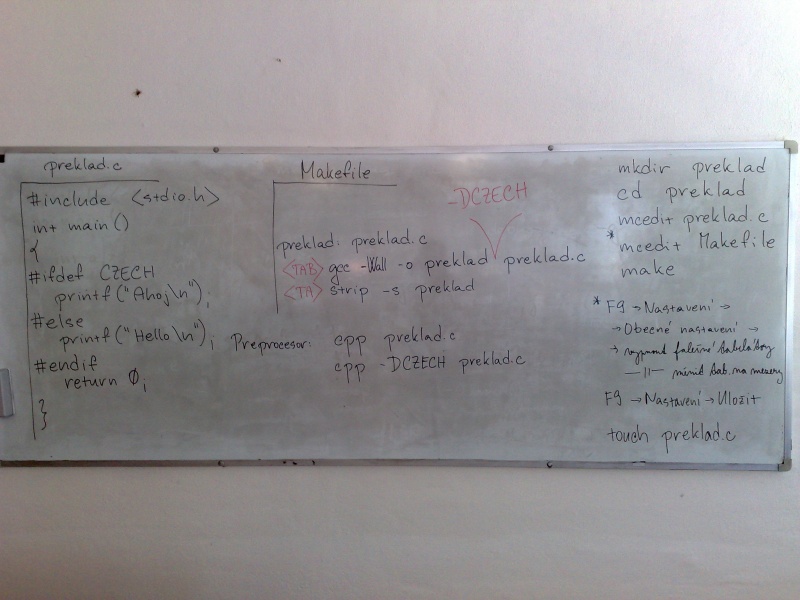 preklad.c
#include <stdio.h>
int main()
{
#ifdef CZECH
printf("Ahoj\n");
#else
printf("Hello\n");
#endif
return 0;
}
Makefile
-DCZECH
preklad: preklad.c
<TAB> gcc -Wall -o preklad preklad.c
<TA> strip -s preklad
Preprocesor: cpp preklad.c
cpp -DCZECH preklad.c
mkdir preklad
cd preklad
mcedit preklad.c
* mcedit Makefile
make
* F9 → Nastavení →
→ Obecné nastavení →
→ vypnout falešné tabelátory
—||— měnit tab. na mezery
F9 → Nastavení → Uložit
touch preklad.c